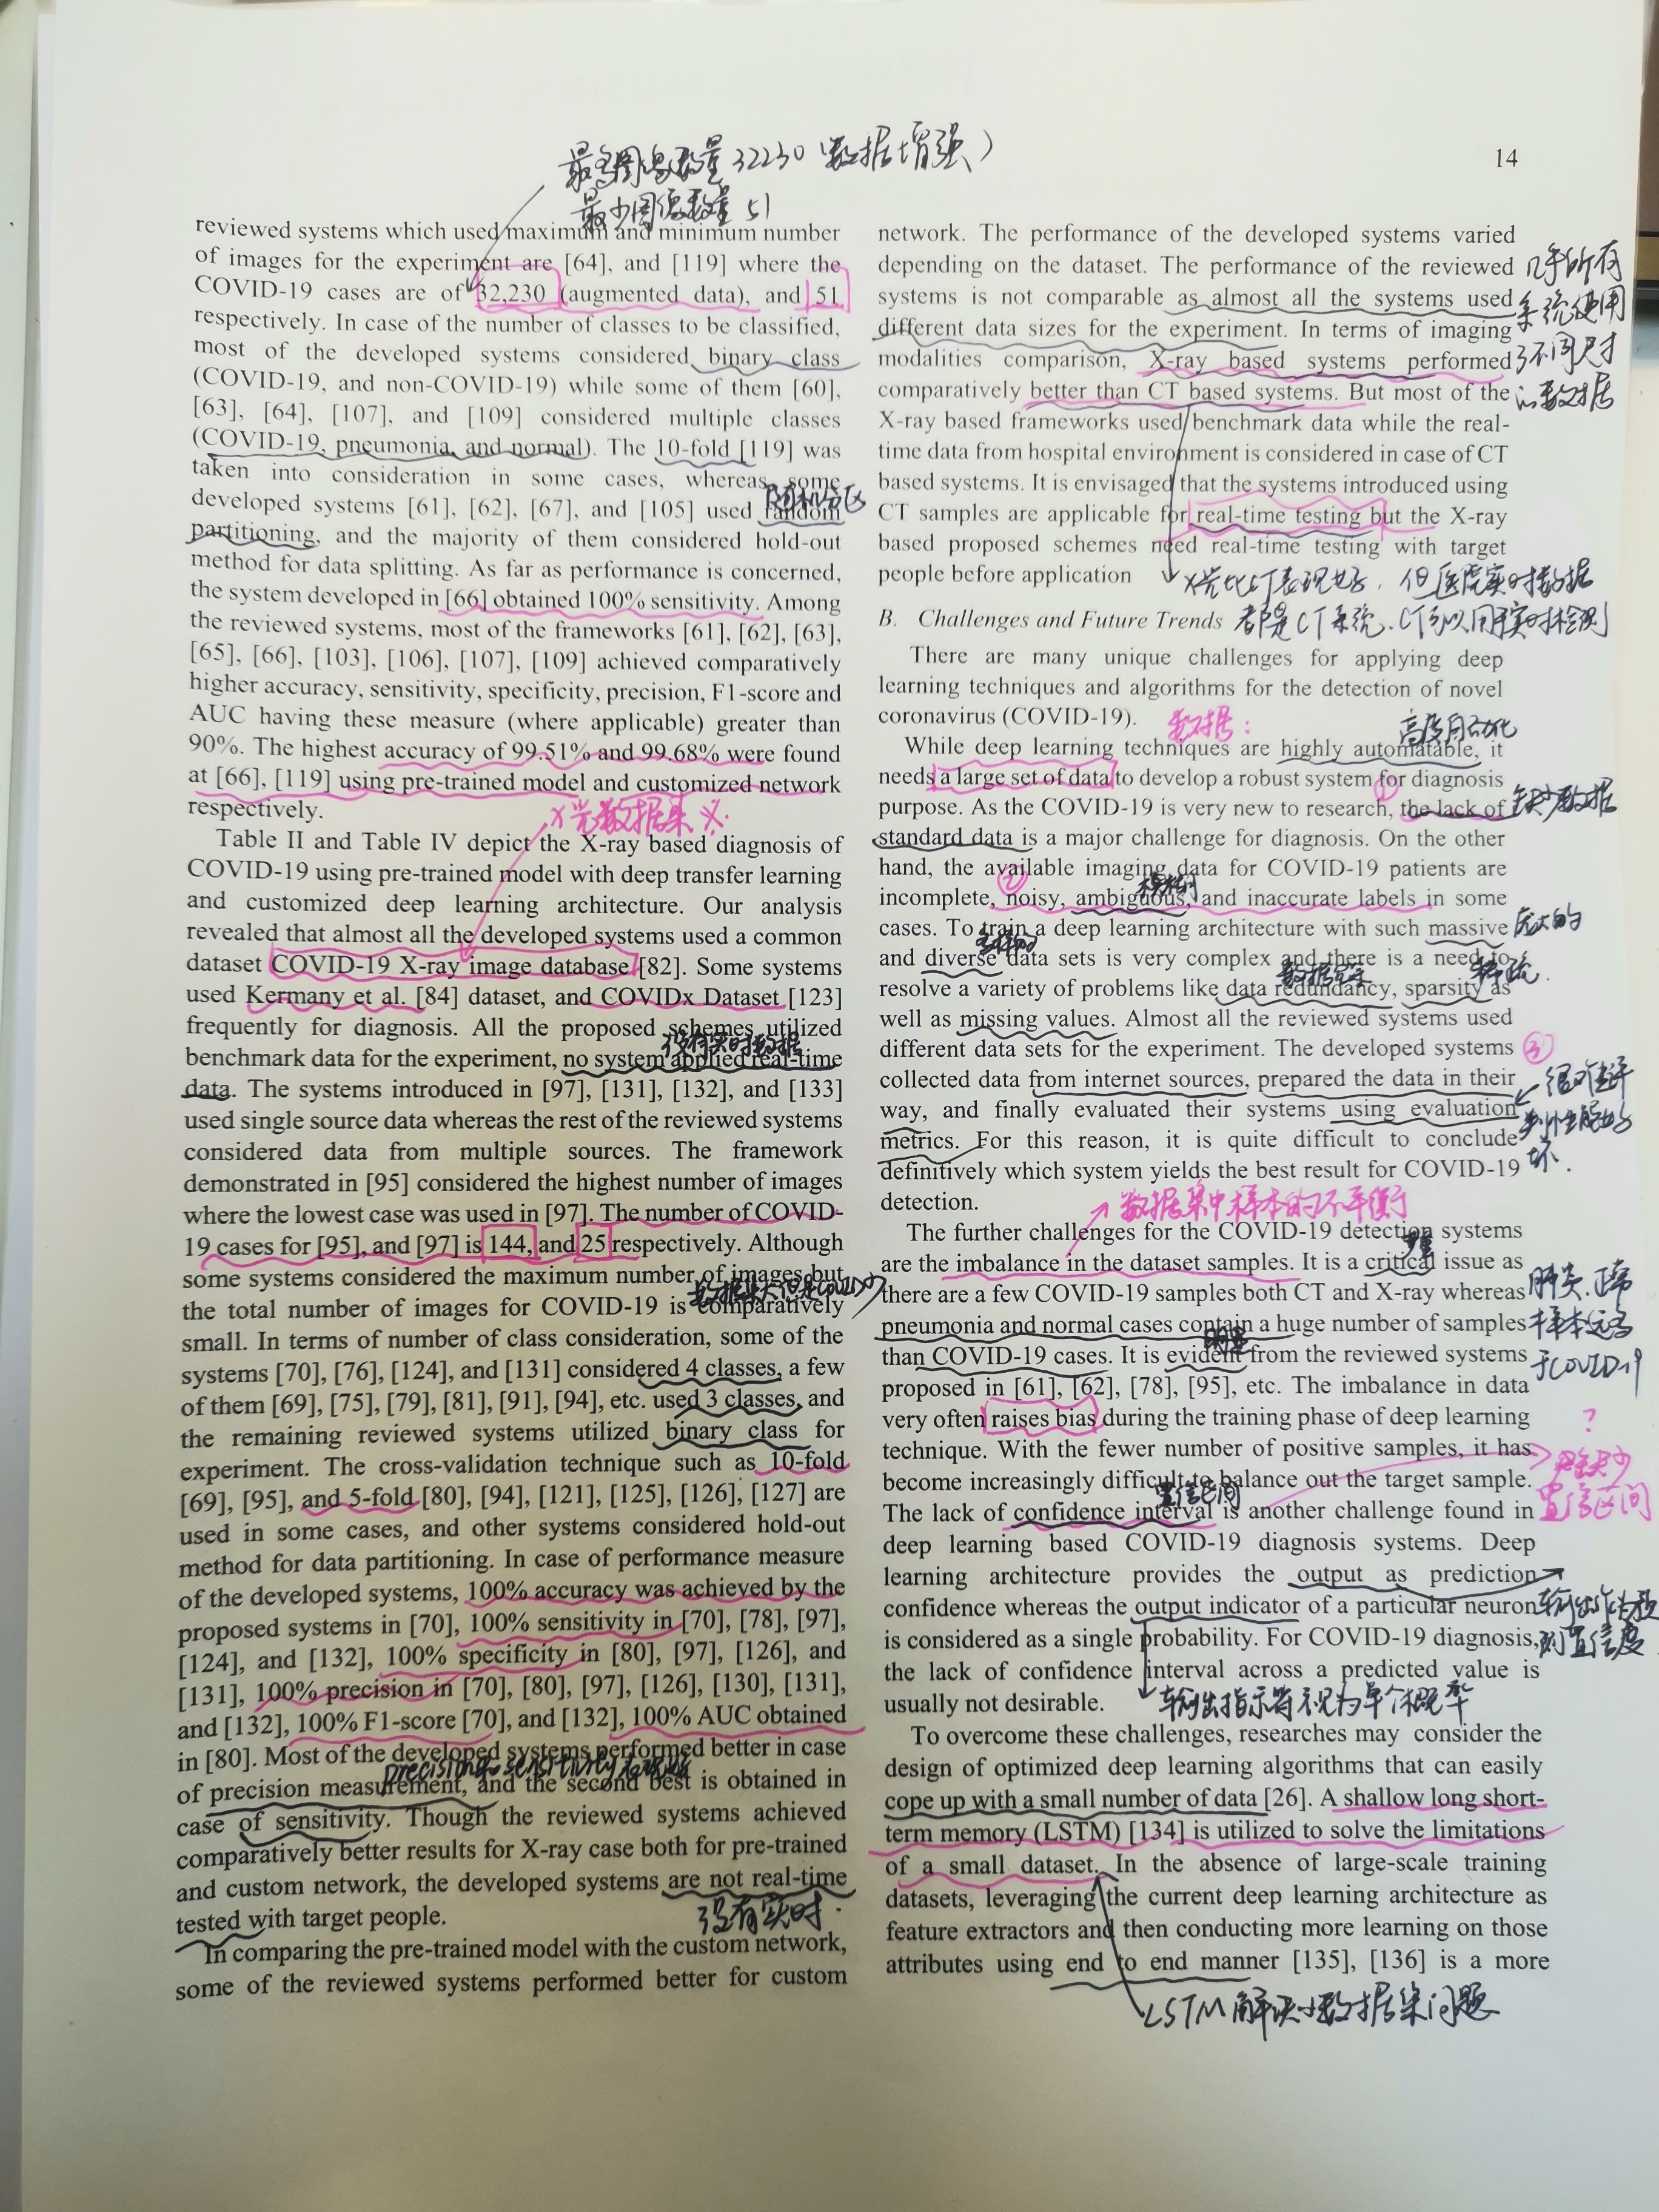 最多图像数量32230(数据增强)
最少图像数量51
14
reviewed systems which used maximum and minimum number
of images for the experiment are [64], and [119] where the
COVID-19 cases are of 32,230 (augmented data), and 51
respectively. In case of the number of classes to be classified,
most of the developed systems considered binary class
(COVID-19, and non-COVID-19) while some of them [60],
[63], [64], [107], and [109] considered multiple classes
(COVID-19, pneumonia, and normal). The 10-fold [119] was
taken into consideration in some cases, whereas some
随机分区
developed systems [61], [62], [67], and [105] used random
partitioning, and the majority of them considered hold-out
method for data splitting. As far as performance is concerned,
the system developed in [66] obtained 100% sensitivity. Among
the reviewed systems, most of the frameworks [61], [62], [63],
[65], [66], [103], [106], [107], [109] achieved comparatively
higher accuracy, sensitivity, specificity, precision, F1-score and
AUC having these measure (where applicable) greater than
90%. The highest accuracy of 99.51% and 99.68% were found
at [66], [119] using pre-trained model and customized network
respectively.
X光数据集※
Table II and Table IV depict the X-ray based diagnosis of
COVID-19 using pre-trained model with deep transfer learning
and customized deep learning architecture. Our analysis
revealed that almost all the developed systems used a common
dataset COVID-19 X-ray image database [82]. Some systems
used Kermany et al. [84] dataset, and COVIDx Dataset [123]
frequently for diagnosis. All the proposed schemes utilized
没有实时数据
benchmark data for the experiment, no system applied real-time
data. The systems introduced in [97], [131], [132], and [133]
used single source data whereas the rest of the reviewed systems
considered data from multiple sources. The framework
demonstrated in [95] considered the highest number of images
where the lowest case was used in [97]. The number of COVID-
19 cases for [95], and [97] is 144, and 25 respectively. Although
some systems considered the maximum number of images but
数据集大但是COVID少
the total number of images for COVID-19 is comparatively
small. In terms of number of class consideration, some of the
systems [70], [76], [124], and [131] considered 4 classes, a few
of them [69], [75], [79], [81], [91], [94], etc. used 3 classes, and
the remaining reviewed systems utilized binary class for
experiment. The cross-validation technique such as 10-fold
[69], [95], and 5-fold [80], [94], [121], [125], [126], [127] are
used in some cases, and other systems considered hold-out
method for data partitioning. In case of performance measure
of the developed systems, 100% accuracy was achieved by the
proposed systems in [70], 100% sensitivity in [70], [78], [97],
[124], and [132], 100% specificity in [80], [97], [126], and
[131], 100% precision in [70], [80], [97], [126], [130], [131],
and [132], 100% F1-score [70], and [132], 100% AUC obtained
in [80]. Most of the developed systems performed better in case
precision sensitivity
of precision measurement, and the second best is obtained in
case of sensitivity. Though the reviewed systems achieved
comparatively better results for X-ray case both for pre-trained
and custom network, the developed systems are not real-time
tested with target people.
没有实时.
In comparing the pre-trained model with the custom network,
some of the reviewed systems performed better for custom
network. The performance of the developed systems varied
depending on the dataset. The performance of the reviewed
systems is not comparable as almost all the systems used
different data sizes for the experiment. In terms of imaging
几乎所有
系统使用
了不同尺寸
的数据
modalities comparison, X-ray based systems performed
comparatively better than CT based systems. But most of the
X-ray based frameworks used benchmark data while the real-
time data from hospital environment is considered in case of CT
based systems. It is envisaged that the systems introduced using
CT samples are applicable for real-time testing but the X-ray
based proposed schemes need real-time testing with target
people before application
X光比CT表现好, 但医院实时数据
都是CT系统. CT可以用实时检测
B. Challenges and Future Trends
There are many unique challenges for applying deep
learning techniques and algorithms for the detection of novel
coronavirus (COVID-19).
数据:
高度自动化
While deep learning techniques are highly automatable, it
needs a large set of data to develop a robust system for diagnosis
①
purpose. As the COVID-19 is very new to research, the lack of
缺少数据
standard data is a major challenge for diagnosis. On the other
hand, the available imaging data for COVID-19 patients are
②
模糊的
incomplete, noisy, ambiguous, and inaccurate labels in some
cases. To train a deep learning architecture with such massive
庞大的
多样的
and diverse data sets is very complex and there is a need to
数据冗余
稀疏
resolve a variety of problems like data redundancy, sparsity as
well as missing values. Almost all the reviewed systems used
different data sets for the experiment. The developed systems
③
collected data from internet sources, prepared the data in their
way, and finally evaluated their systems using evaluation
metrics. For this reason, it is quite difficult to conclude
definitively which system yields the best result for COVID-19
很难评
判性能好
坏.
detection.
数据集中样本的不平衡
The further challenges for the COVID-19 detection systems
are the imbalance in the dataset samples. It is a critical issue as
there are a few COVID-19 samples both CT and X-ray whereas
pneumonia and normal cases contain a huge number of samples
肺炎.正常
样本远多
于COVID19
明显
than COVID-19 cases. It is evident from the reviewed systems
proposed in [61], [62], [78], [95], etc. The imbalance in data
very often raises bias during the training phase of deep learning
?
technique. With the fewer number of positive samples, it has
become increasingly difficult to balance out the target sample.
缺少
置信区间
置信区间
The lack of confidence interval is another challenge found in
deep learning based COVID-19 diagnosis systems. Deep
learning architecture provides the output as prediction
confidence whereas the output indicator of a particular neuron
输出作为预
测置信度
is considered as a single probability. For COVID-19 diagnosis,
the lack of confidence interval across a predicted value is
usually not desirable.
输出指示符视为单个概率
To overcome these challenges, researches may consider the
design of optimized deep learning algorithms that can easily
cope up with a small number of data [26]. A shallow long short-
term memory (LSTM) [134] is utilized to solve the limitations
of a small dataset. In the absence of large-scale training
datasets, leveraging the current deep learning architecture as
feature extractors and then conducting more learning on those
attributes using end to end manner [135], [136] is a more
LSTM解决小数据集问题